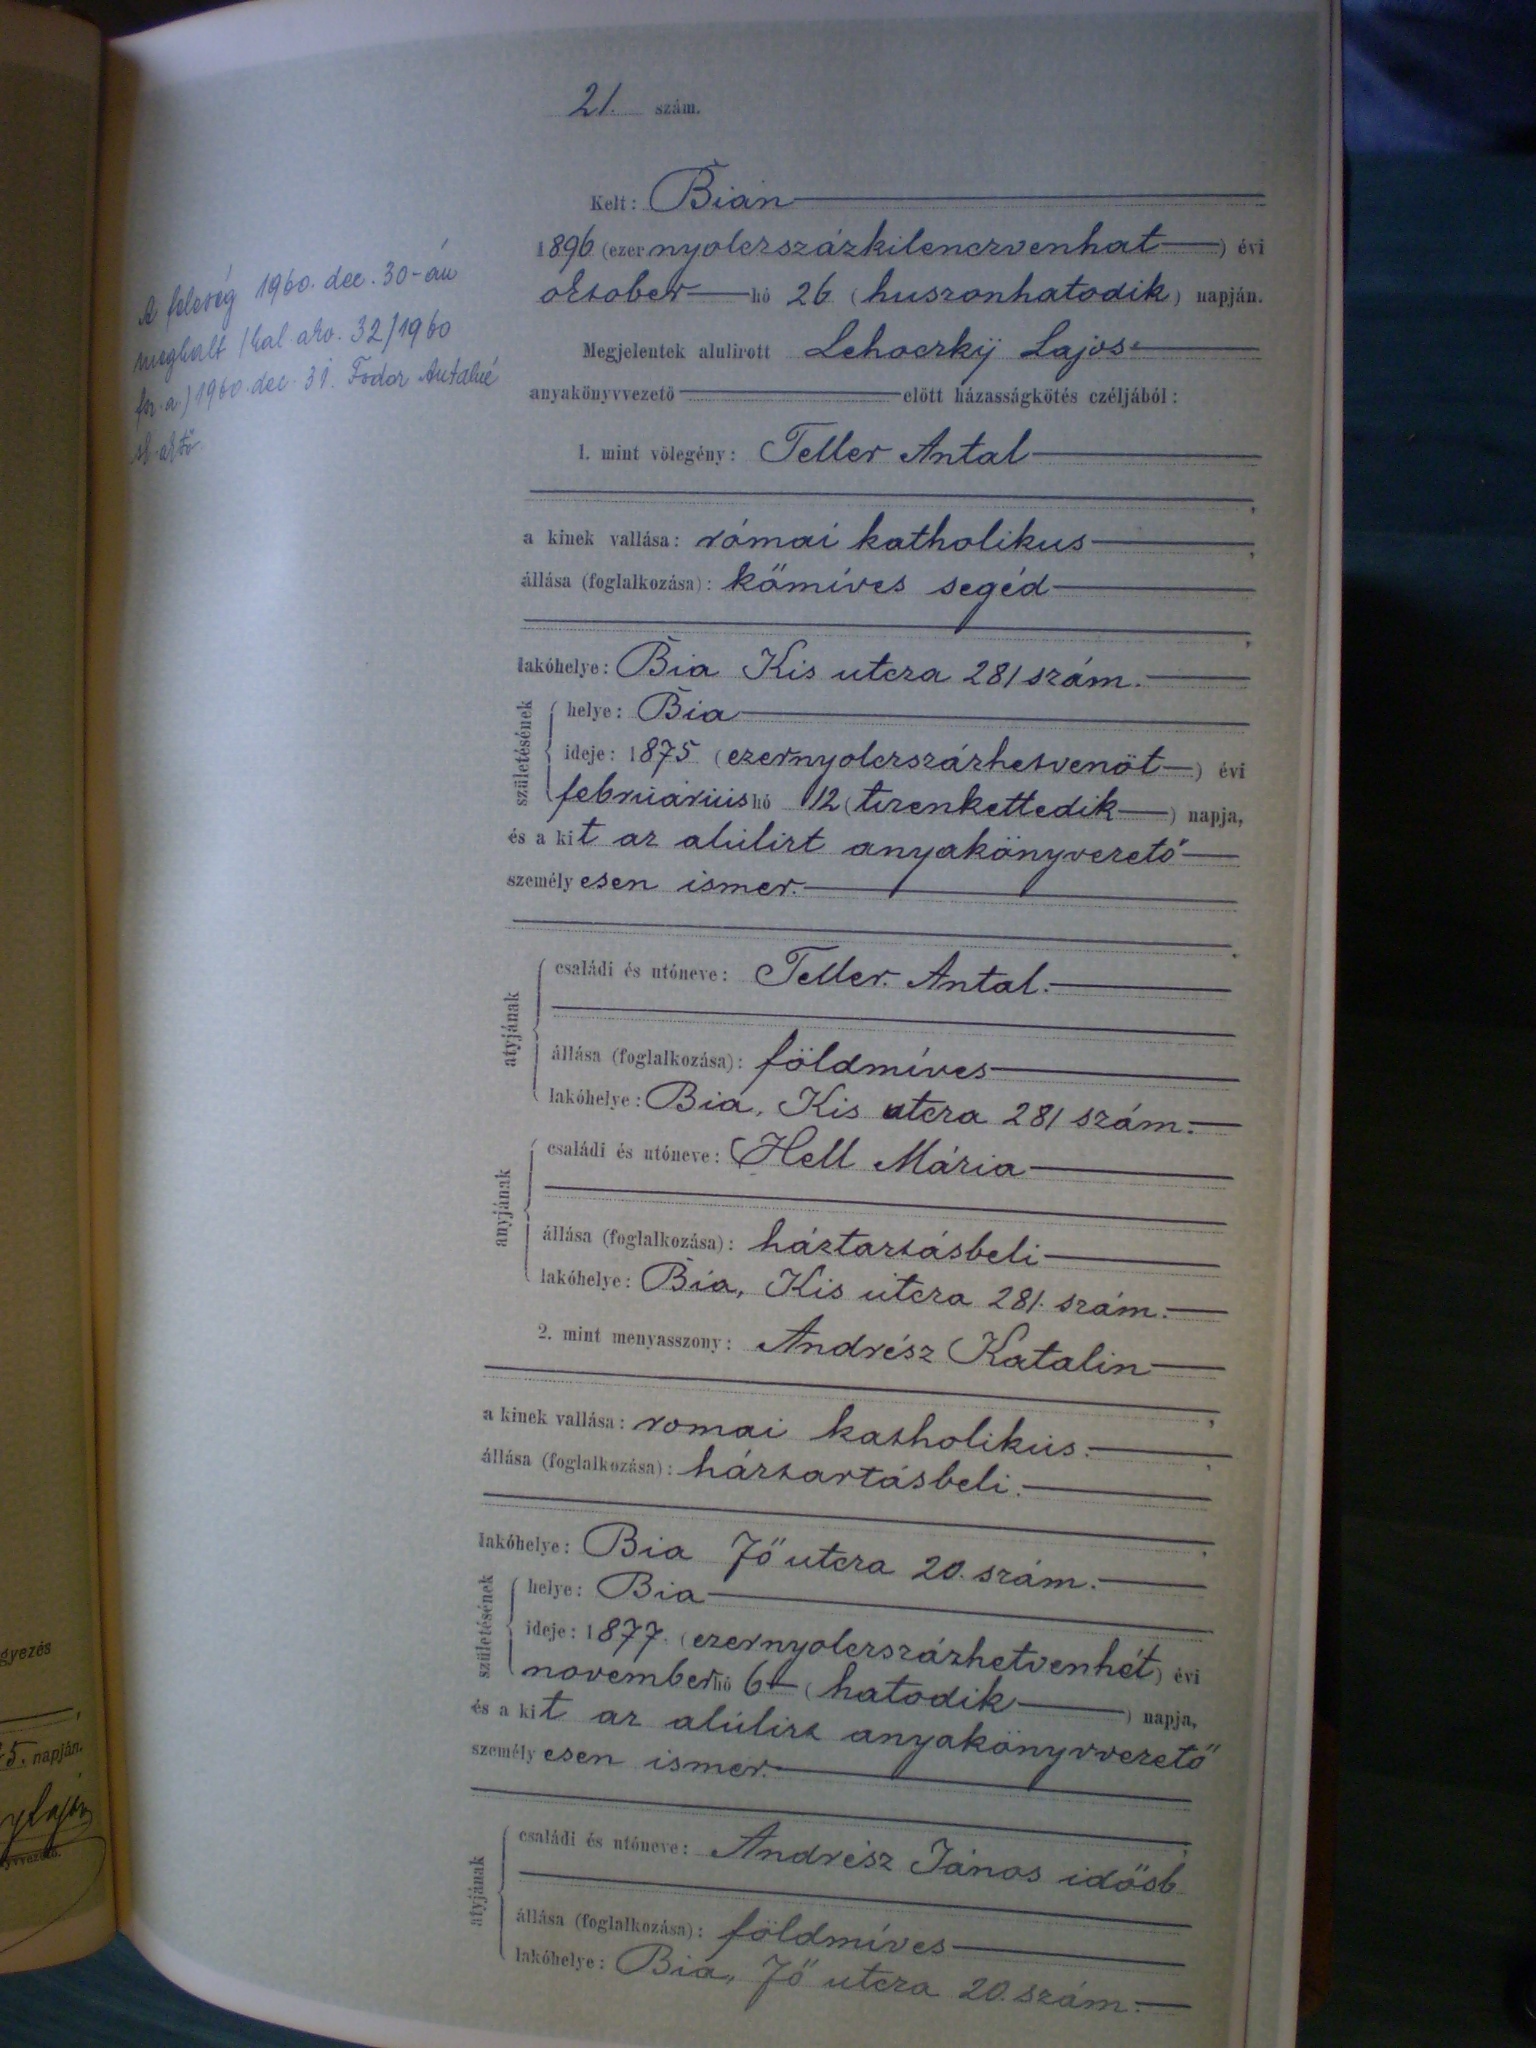 21. szám.
Kelt: Bián
1896 (ezernyolczszázkilenczvenhat) évi
október hó 26 (huszonhatodik) napján.
Megjelentek alulirott Lehoczkÿ Lajos
anyakönyvvezető előtt házasságkötés czéljából:
1. mint vőlegény: Teller Antal
a kinek vallása: római katholikus,
állása (foglalkozása): kőmíves segéd,
lakóhelye: Bia Kis utcza 281 szám.
születésének
helye: Bia
ideje: 1875 (ezernyolczszázhetvenöt) évi
februáriús hó 12 (tizenkettedik) napja,
és a kit az alúlirt anyakönyvezető
személyesen ismer.
atyjának
családi és utóneve: Teller Antal.
állása (foglalkozása): földmíves
lakóhelye: Bia, Kis utcza 281 szám.
anyjának
családi és utóneve: Hell Mária
állása (foglalkozása): háztartásbeli
lakóhelye: Bia, Kis útcza 281. szám.
2. mint menyasszony: Andrész Katalin,
a kinek vallása: romai katholikús.,
állása (foglalkozása): háztartásbeli.
lakóhelye: Bia Fő utcza 20. szám.
születésének
helye: Bia
ideje: 1877. (ezernyolczszázhetvenhét) évi
november hó 6 (hatodik) napja,
és a kit az alúlirt anyakönyvvezető
személyesen ismer.
atyjának
családi és utóneve: Andrész János idősb
állása (foglalkozása): földmíves
lakóhelye: Bia, Fő utcza 20. szám.
A feleség 1960. dec. 30-án
meghalt /hal. akv. 32/1960
1960. dec. 31. Fodor Antalné
gyezés
5. napján.